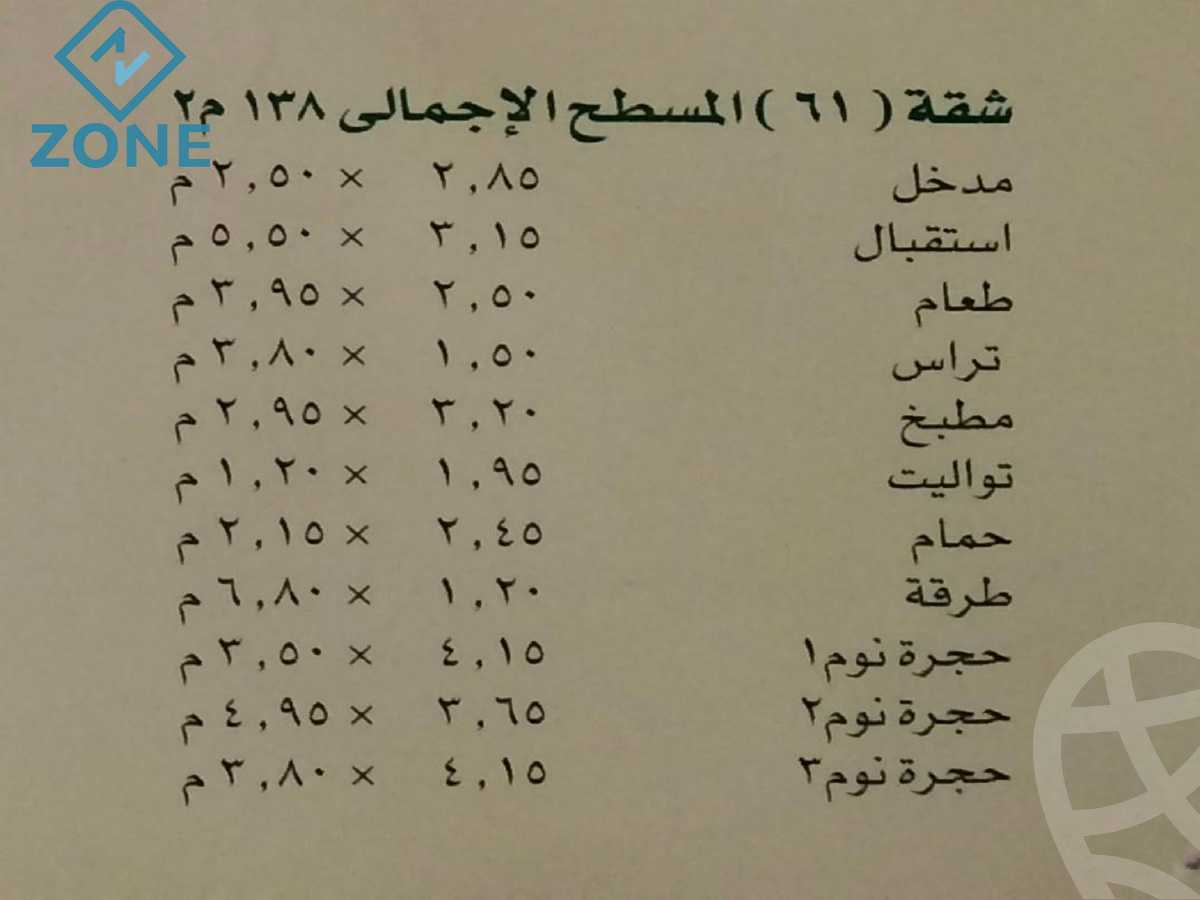 ZONE
شقة ( ٦١ ) المسطح الإجمالى ١٣٨ م٢
مدخل ٢,٨٥ × ٢,٥٠ م
استقبال ٣,١٥ × ٥,٥٠ م
طعام ٢,٥٠ × ٣,٩٥ م
تراس ١,٥٠ × ٣,٨٠ م
مطبخ ٣,٢٠ × ٢,٩٥ م
تواليت ١,٩٥ × ١,٢٠ م
حمام ٢,٤٥ × ٢,١٥ م
طرقة ١,٢٠ × ٦,٨٠ م
حجرة نوم١ ٤,١٥ × ٣,٥٠ م
حجرة نوم٢ ٣,٦٥ × ٤,٩٥ م
حجرة نوم٣ ٤,١٥ × ٣,٨٠ م